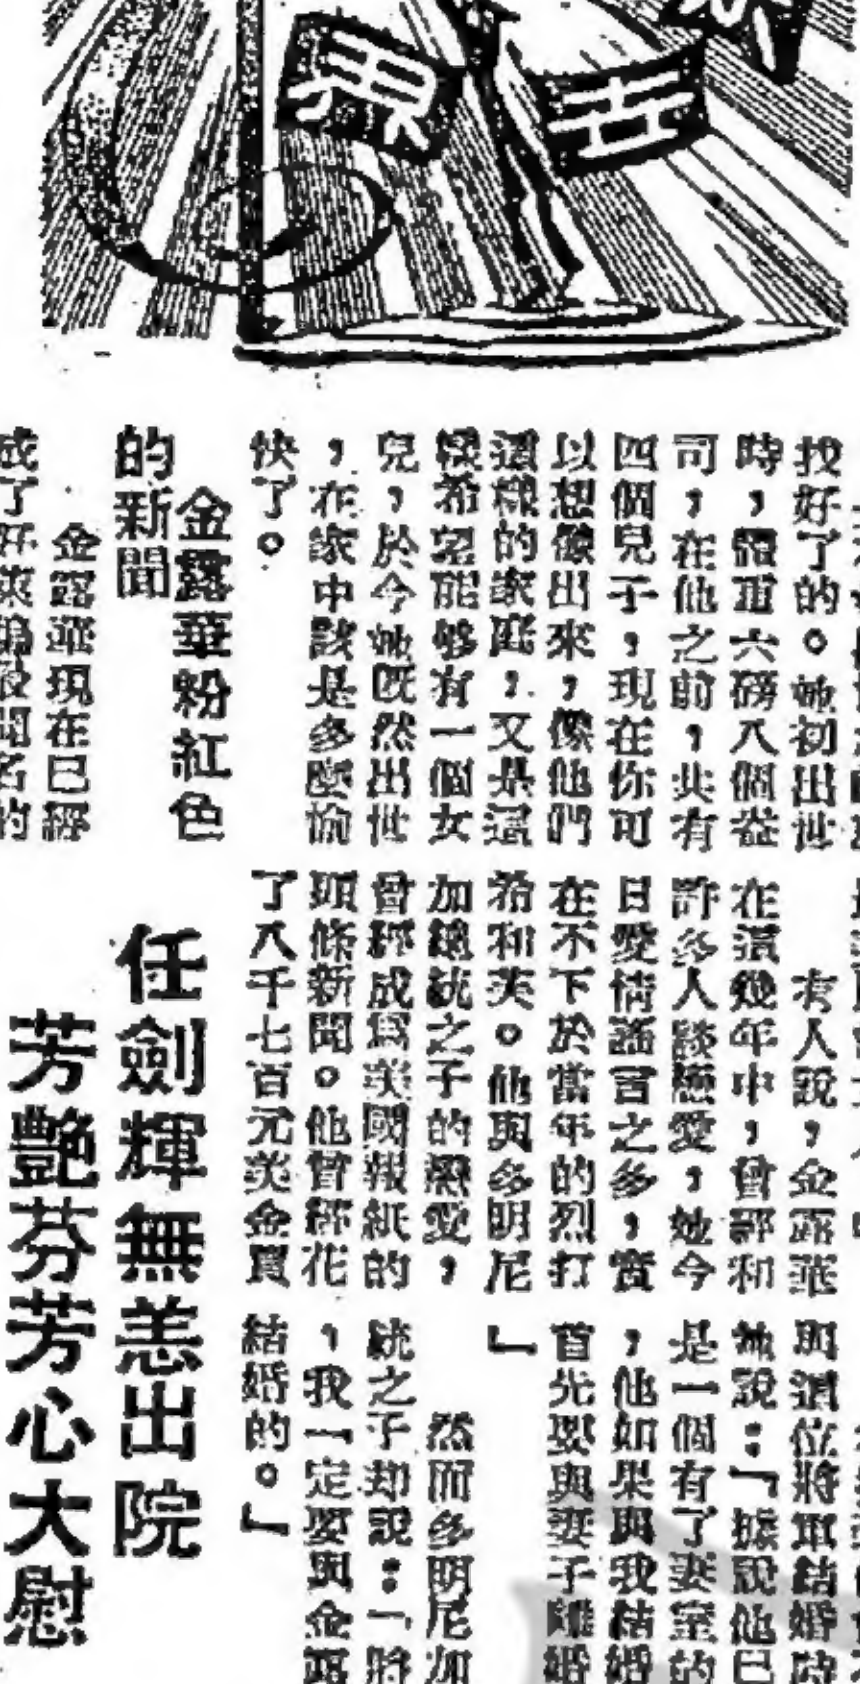 世界
找好了的。她初出世
時，體重六磅八個盎
司，在他之前，共有
四個兒子，現在你可
以想像出來，像他們
這樣的家庭，又是這
樣希望能够有一個女
兒，於今她既然出世
，在家中該是多麼愉
快了。
金露華粉紅色
的新聞
金露華現在已經
有人說，金露華
在這幾年中，曾經和
許多人談戀愛，她今
日愛情謠言之多，實
在不下於當年的烈打
希和芙。他與多明尼
加總統之子的戀愛，
曾經成爲美國報紙的
頭條新聞。他曾經花
了八千七百元美金買
與這位將軍結婚時
她說：「據說他已
是一個有了妻室的
，他如果與我結婚
首先要與妻子離婚
」
然而多明尼加
統之子却說：「將
，我一定要與金露
結婚的。」
任劍輝無恙出院
芳艷芬芳心大慰